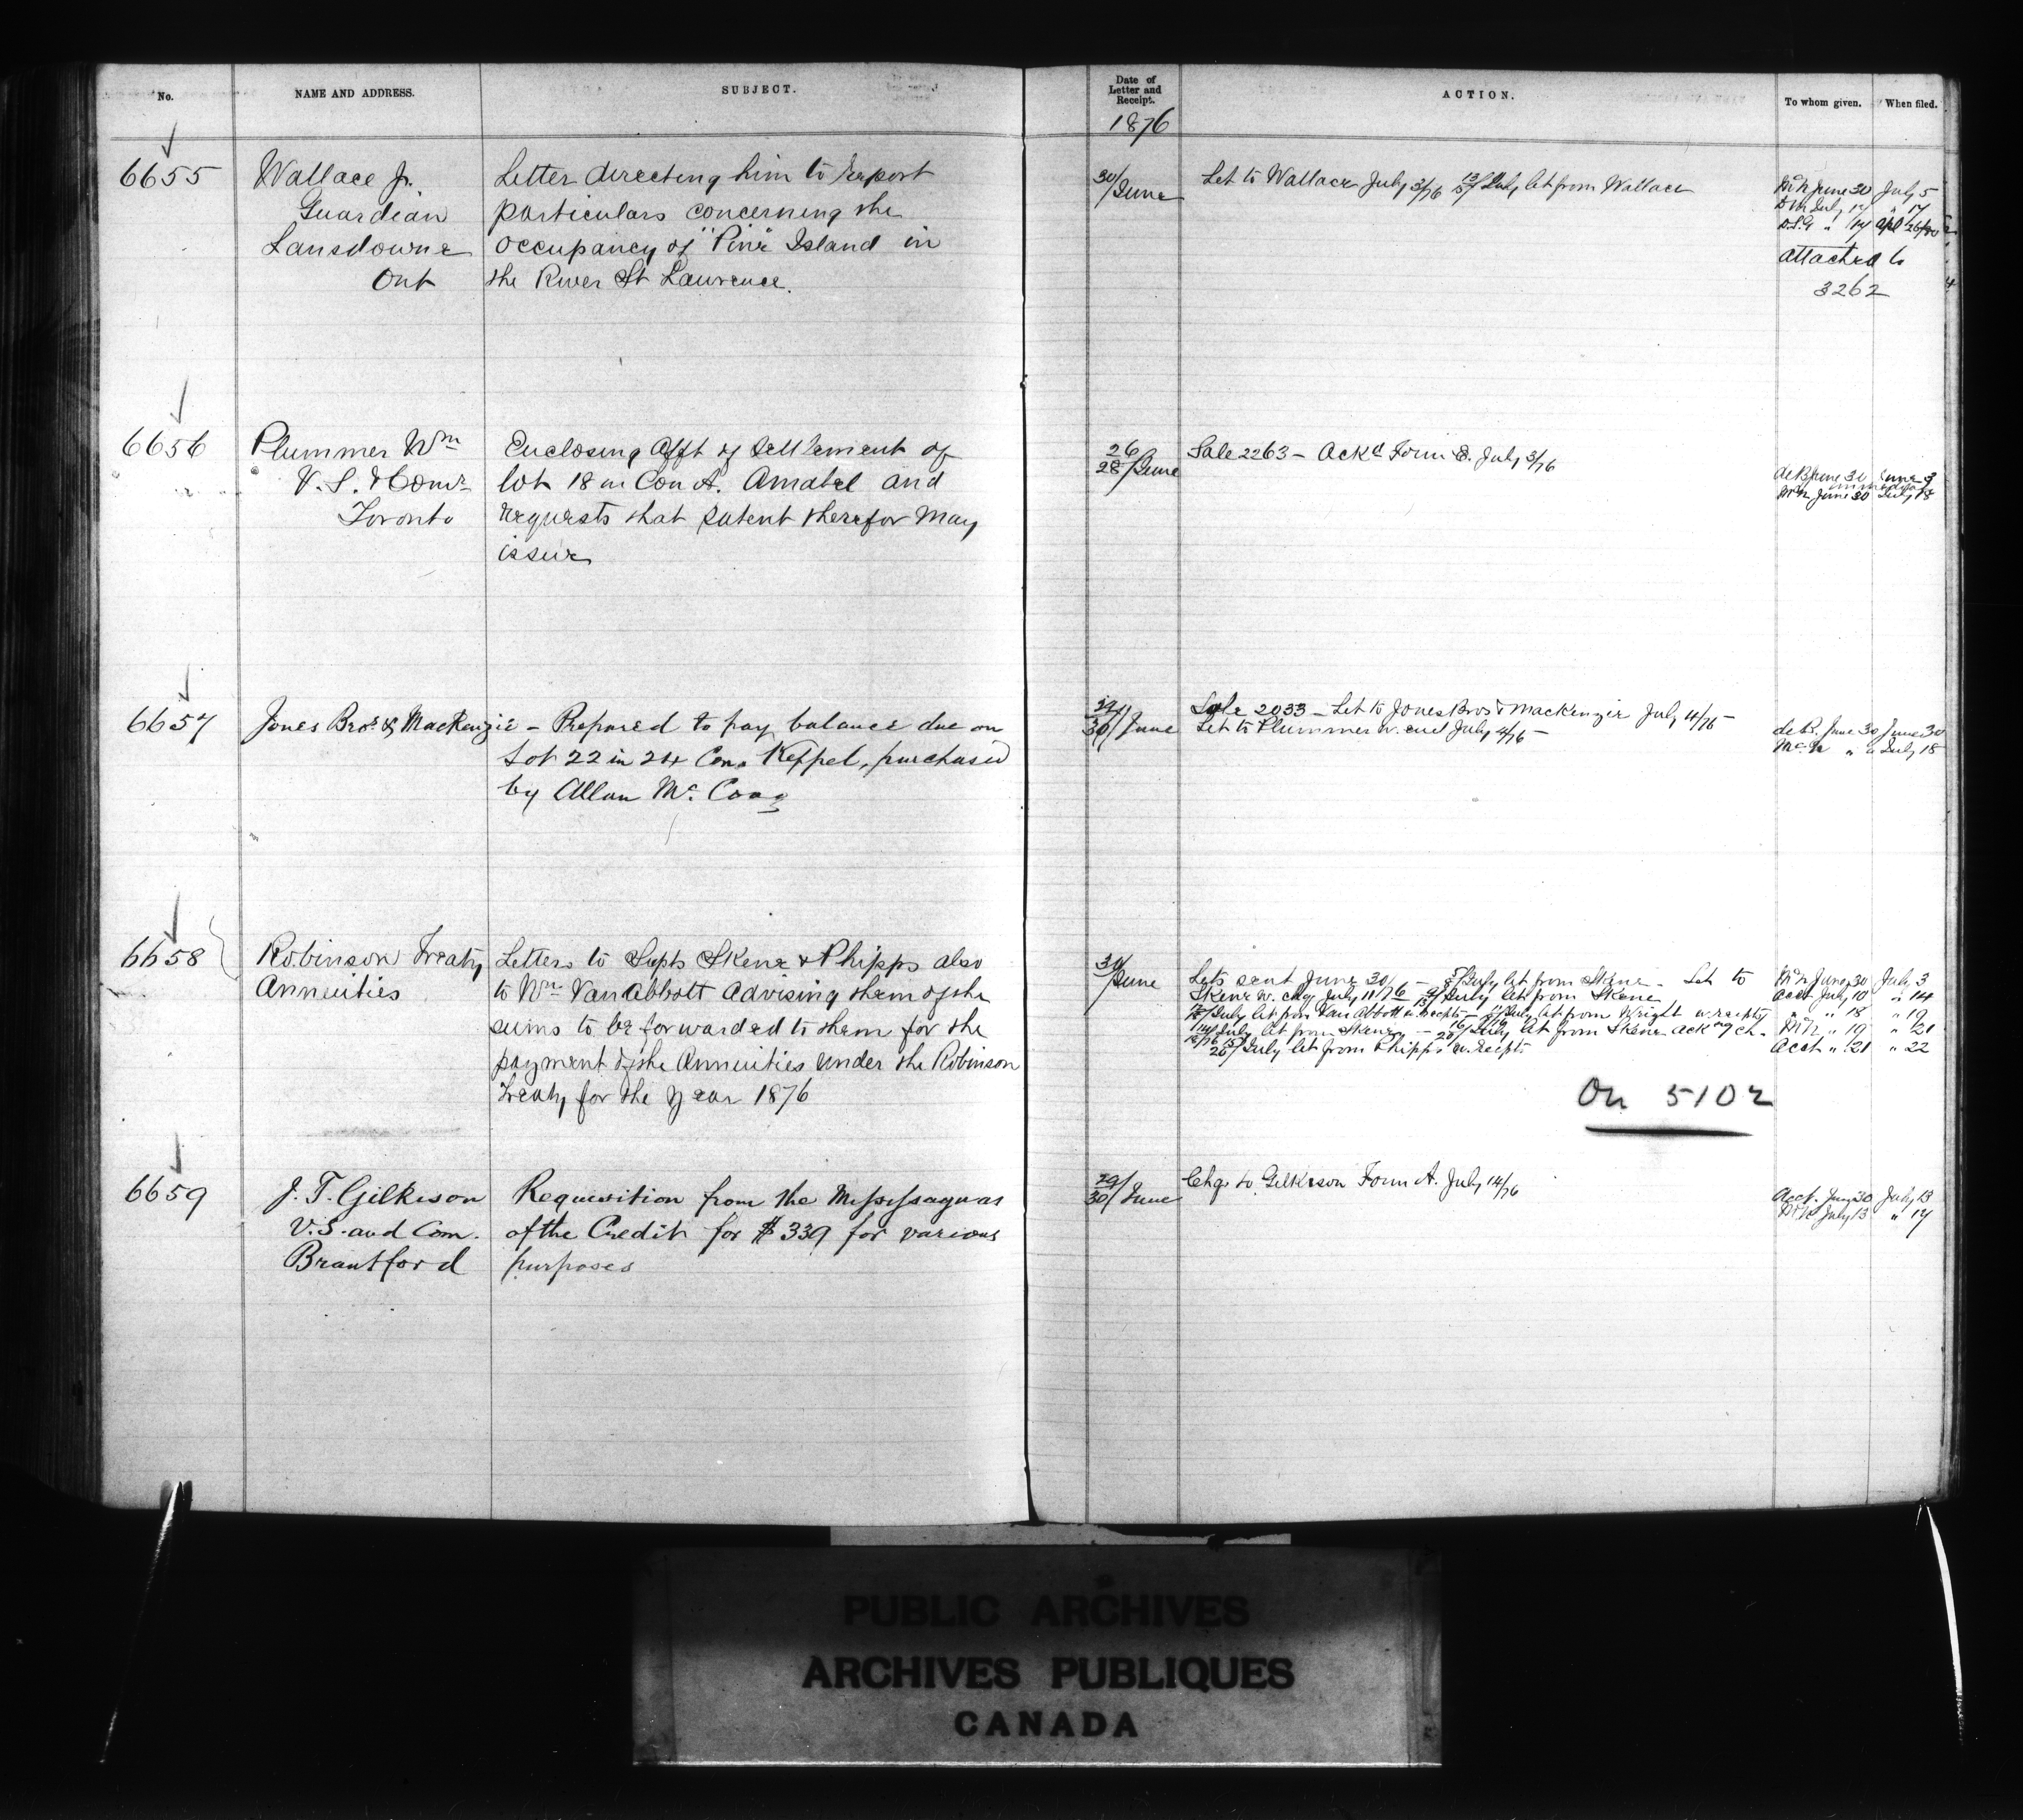 No.
NAME AND ADDRESS.
SUBJECT.
6655
Wallace J.
Guardian
Lansdowne
Ont
Letter directing him to report
particulars concerning the
occupancy of "Pine" Island in
the River St Lawrence.
6656
Plummer Wm
V. S. & Comr
Toronto
Enclosing Afft of Settlement of
lot 18 in Con A. Amabel and
requests that patent therefor may
issue
6657
Jones Bros & MacKenzie - Prepared to pay balance due on
Lot 22 in 24 Con. Keppel, purchased
by Allan Mc
6658
Robinson Treaty
Annuities
Letters to Supts Skene & Phipps also
to Wm Van Abbott Advising them of the
sums to be forwarded to them for the
payment of the Annuities under the Robinson
Treaty for the year 1876
6659
J. T. Gilkison
V. S. and Com.
Brantford
Requisition from the Mississaguas
of the Credit for $339 for various
purposes
Date of
Letter and
Receipt.
1876
ACTION.
To whom given.
When filed.
30/June
Let to Wallace July 3/76 July let from Wallace
McN June 30 July 5
July 14 " 17
D.S.G " 14 Apl 26/80
attached to
3262
26
28/June
Sale 2263 - Ackd Form E. July 3/76
June 30
McN June 30 July 18
29
30/June
Sale 2033 - Let to Jones Bros & MacKenzie July 4/76 -
Let to Plummer w. encl July 4/76 -
de B. June 30 June 30
McN " " July 18
30/June
Lets sent June 30/76 - 5/July let from Skene - Let to
Skene w. chq July 11/76 July let from Skene
July let from Van Abbott w. recpts - July let from Wright w. recpts
July let from Skene - 20/July let from Skene ackng ch.
20/July let from Phipps w. recpts
McN June 30 July 3
Acct July 10 " 14
" " 18 " 19
McN " 19 " 21
Acct " 21 " 22
On 5102
29
30/June
Chq to Gilkison Form A. July 14/76
Acct. June 30 July 13
McN July 13 " 14
PUBLIC ARCHIVES
ARCHIVES PUBLIQUES
CANADA